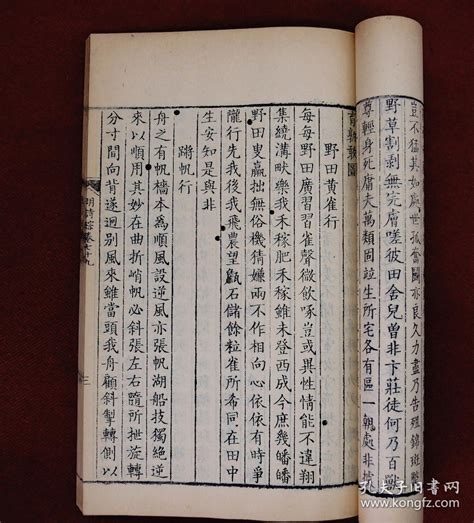 豈不猛其如屬世孤奮鬭亦良久力盡乃告殪錦斑
野草割剥無完膚嗟彼田舍兒曾非卞莊徒何乃百獸
尊輕身死庸夫萬類同竝生所宅各有區一朝處非
野田黄雀行
每每野田廣習習雀聲微飲啄豈或異性情能不違翔
集繞溝畎樂我禾稼肥禾稼雖未登西成今庶幾皤皤
野田叟羸拙無俗機猜嫌兩不作相向心依依有時爭
隴行先我後我飛農望甔石儲餘粒雀所希同在田中
生安知是與非
蹡帆行
舟之有帆檣本為順風設逆風亦張帆湖船技獨絕逆
來以順用其妙在曲折峭帆必斜張左右隨所捩旋轉
分寸間向背遂迥别風來雖當頭我舟顧斜掣轉側以
明詩綜卷七十九
三
孔夫子旧书网
www.kongfz.com